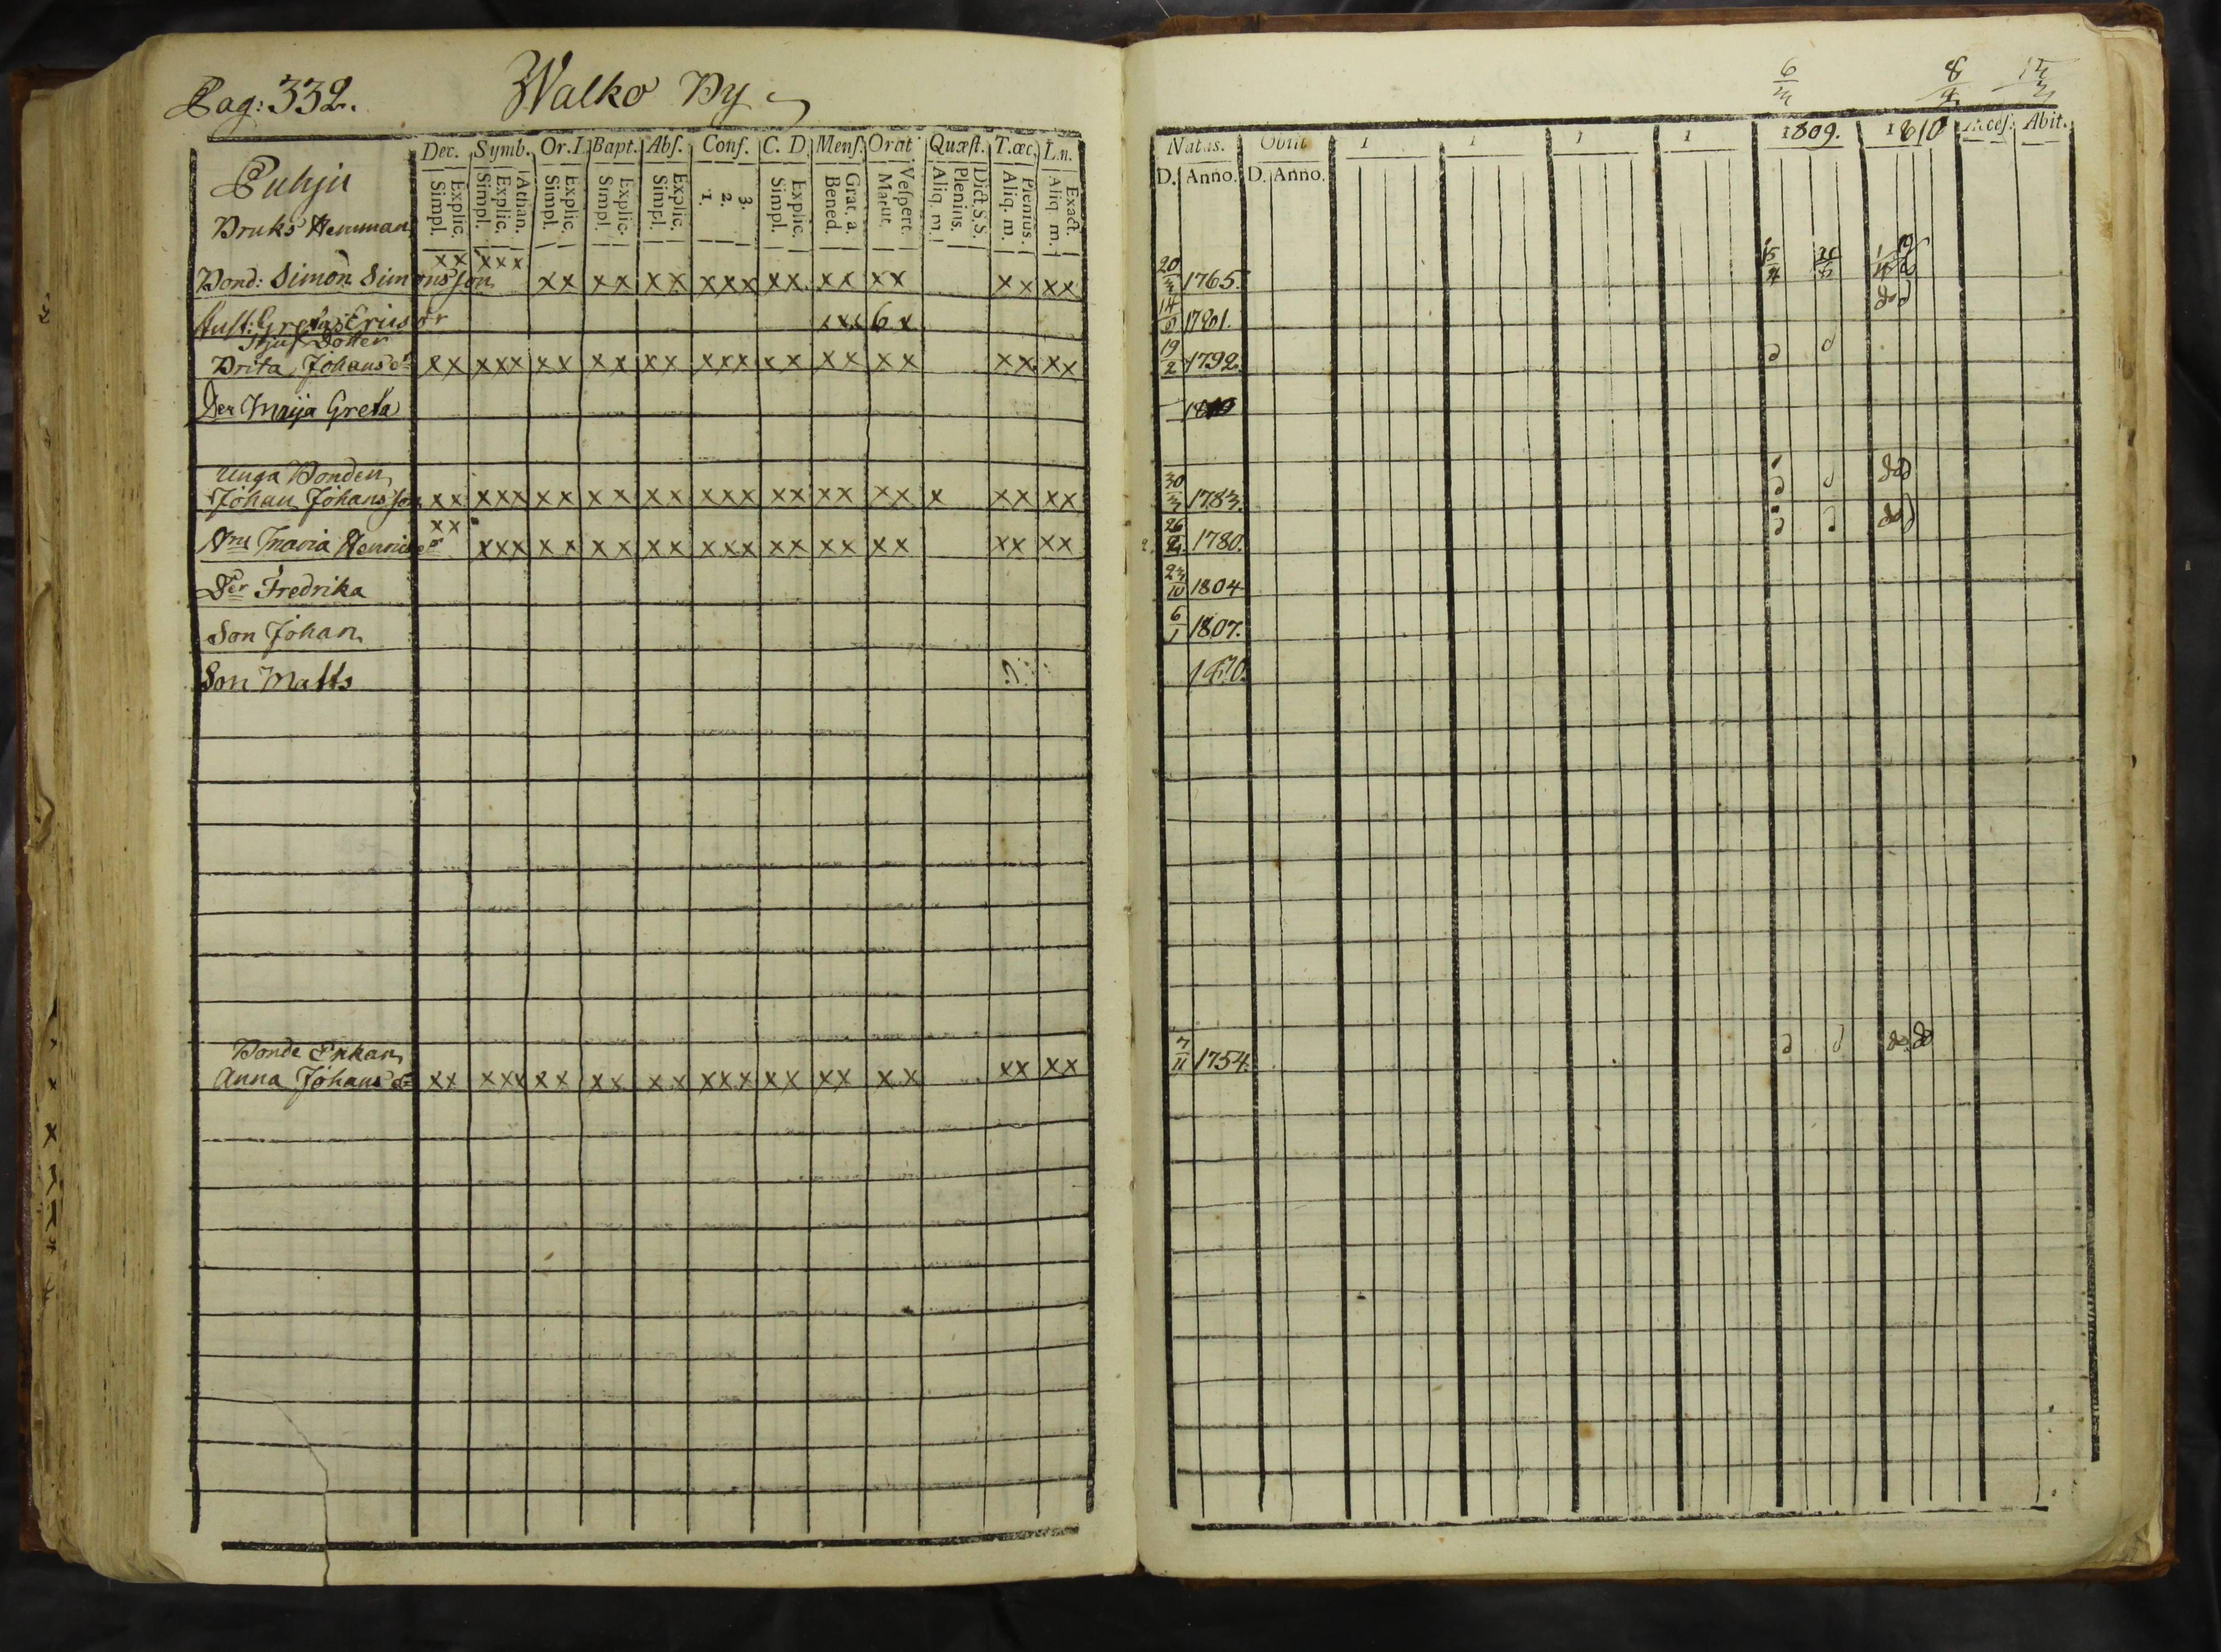 Pag: 332. Walko By
Dec. Symb. Or. D. Bapt. Abſ. Conf. C. D. Menſ. Orat. Quæſt. T. œc. L. n.
Explic. Simpl. Athan. Explic. Simpl. Explic. Simpl. Explic. Simpl. Explic. Simpl. 3. 2. 1. Explic. Simpl. Grat. a. Bened. Veſpert. Matut. Dict. S.S. Plenius. Aliq. m. Plenius. Aliq. m. Exact. Aliq. m.
Puhju
Bruks Hemman
Bond: Simon Simonsson xx xxx xx xx xx xxx xx xx xx xx xx
Hust: Greta Ericsdr xxx 6 x
Styf Dotter
Brita Johansdr xx xxx xx xx xx xxx xx xx xx xx xx
Der Maija Greta
Unga Bonden
Johan Johansson xx xxx xx xx xx xxx xx xx xx x xx xx
Hru Maria Henricsdr xx xxx xx xx xx xxx xx xx xx xx xx
Der Fredrika
Son Johan
Son Matts
Bonde Enkan
Anna Johansdr xx xxx xx xx xx xxx xx xx xx xx xx
6/3 8/4
Natus. Obiit 1 1 1 1 1809. 1810 Acceſ. Abit.
D. Anno. D. Anno.
20/3 1765. 15/4
1781. do
19/2 1792. d d
1810
30/3 1783. d d do
26/2 1780. d d do
23/10 1804
6/1 1807.
1810.
7/11 1754. d d do do